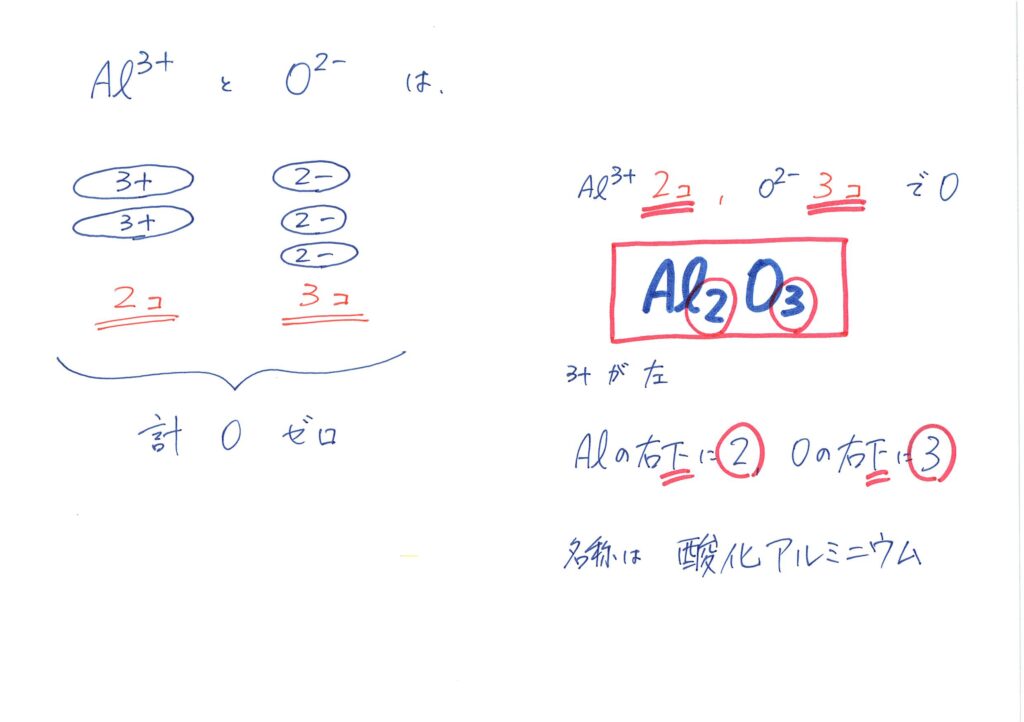 Al³⁺ と O²⁻ は、
3+ 2-
3+ 2-
2-
2コ 3コ
計 0 ゼロ
Al³⁺ 2コ , O²⁻ 3コ で 0
Al₂O₃
3+ が 左
Alの右下に② Oの右下に③
名称は 酸化アルミニウム